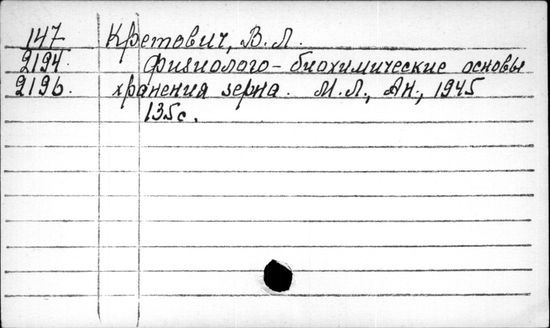 147 Кретович, В.Л.
2194. Физиолого-биохимические основы
2196. хранения зерна. М.Л., Ан., 1945
135с.